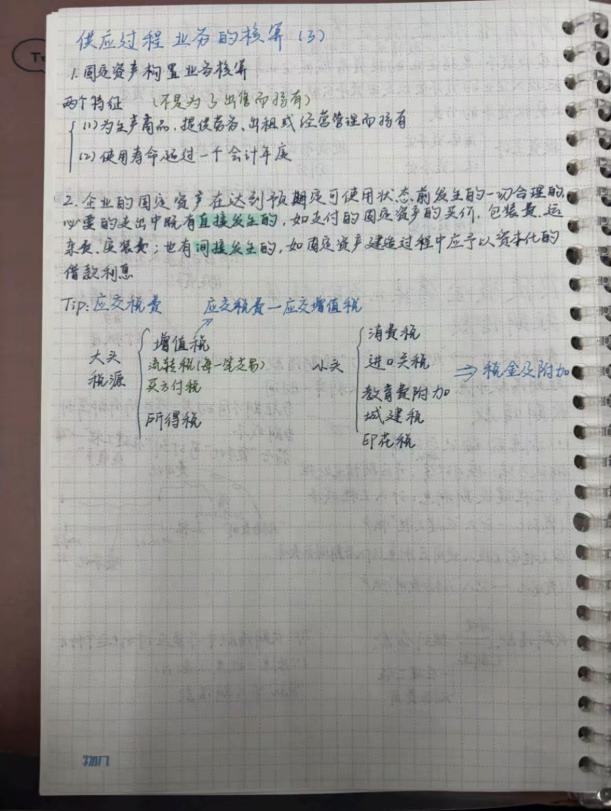 供应过程业务的核算（3）
1.固定资产构置业务核算
两个特征 （不是为了出售而持有）
(1)为生产商品，提供劳务，出租或经营管理而持有
(2)使用寿命超过一个会计年度
2.企业的固定资产在达到预期定可使用状态前发生的一切合理的，
必要的支出中既有直接发生的，如支付的固定资产的买价，包装费，运
杂费，安装费；也有间接发生的，如固定资产建造过程中应予以资本化的
借款利息
Tip:应交税费 应交税费—应交增值税
大头税源
增值税
流转税(每一笔交易)
买方付税
所得税
小头
消费税
进口关税
教育费附加
城建税
印花税
⇒税金及附加